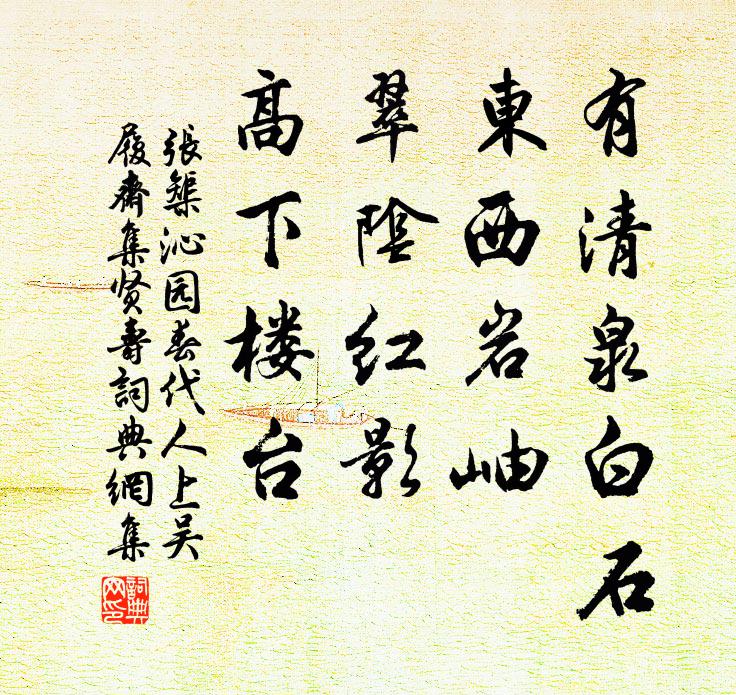 有清泉白石
東西岩岫
翠陰红影
髙下楼台
张榘沁园春代人上吴
履齋集贤壽詞典網集
詞典网印